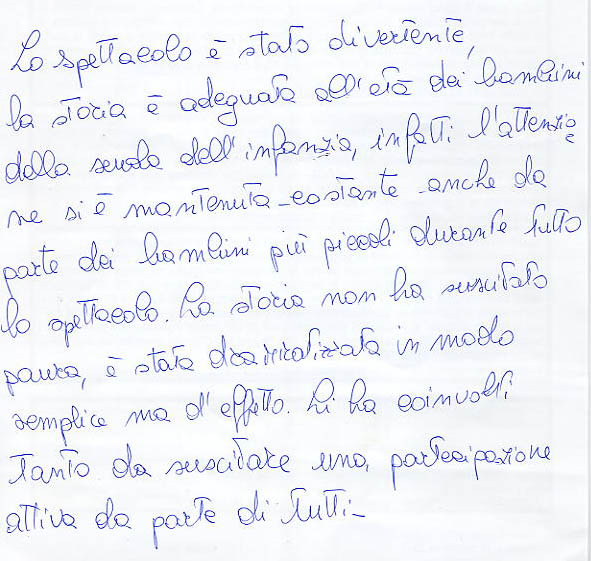 Lo spettacolo è stato divertente,
la storia è adeguata all'età dei bambini
della scuola dell'infanzia, infatti l'attenzio
ne si è mantenuta costante anche da
parte dei bambini più piccoli durante tutto
lo spettacolo. La storia non ha suscitato
paura, è stata drammatizzata in modo
semplice ma d'effetto. Li ha coinvolti
tanto da suscitare una partecipazione
attiva da parte di tutti-